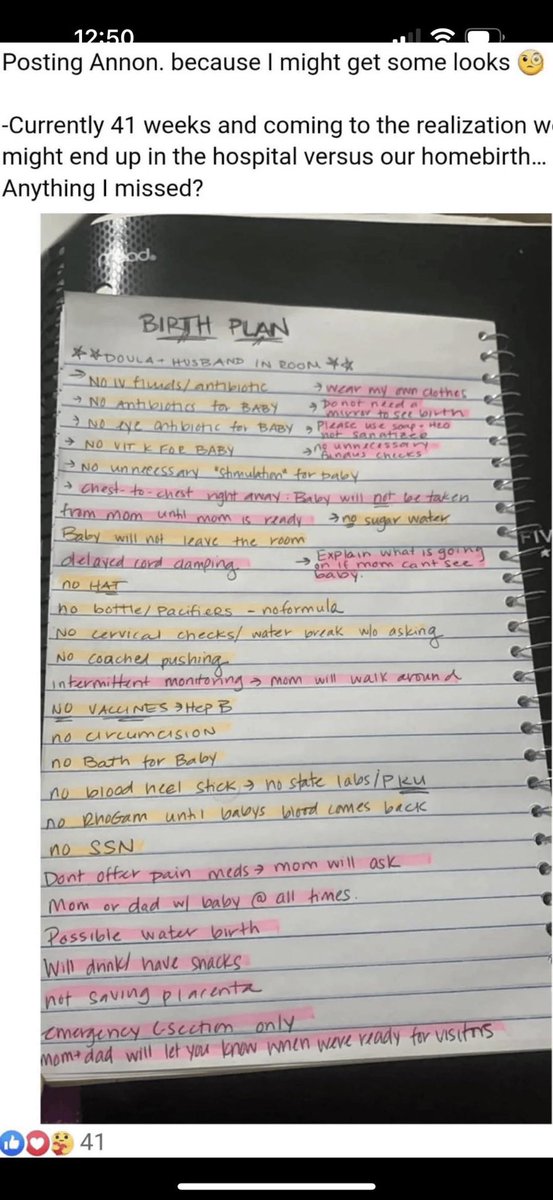 12:50
Posting Annon. because I might get some looks 🧐
-Currently 41 weeks and coming to the realization w
might end up in the hospital versus our homebirth...
Anything I missed?
BIRTH PLAN
**DOULA + HUSBAND IN ROOM**
→ NO IV fluids/antibiotic
→ wear my own clothes
→ NO Antibiotics for BABY
→ Do not need a
mirror to see birth
→ NO eye antibiotic for BABY
→ Please use soap + H2O
not sanatizer
→ NO VIT K FOR BABY
→ no unnecessary
fundus checks
→ No unnecessary "stimulation" for baby
→ chest-to-chest right away: Baby will not be taken
from mom until mom is ready
→ no sugar water
Baby will not leave the room
delayed cord clamping
→ Explain what is going
on if mom cant see
baby.
no HAT
no bottle/pacifiers - no formula
No cervical checks/water break w/o asking
No coached pushing
intermittent monitoring → mom will walk around
NO VACCINES → Hep B
no circumcision
no Bath for Baby
no blood heel stick → no state labs/PKU
no RhoGam until babys blood comes back
no SSN
Dont offer pain meds → mom will ask
Mom or dad w/ baby @ all times.
Possible water birth
Will drink/have snacks
not saving placenta
emergency C-section only
mom + dad will let you know when were ready for visitors
FIV
41